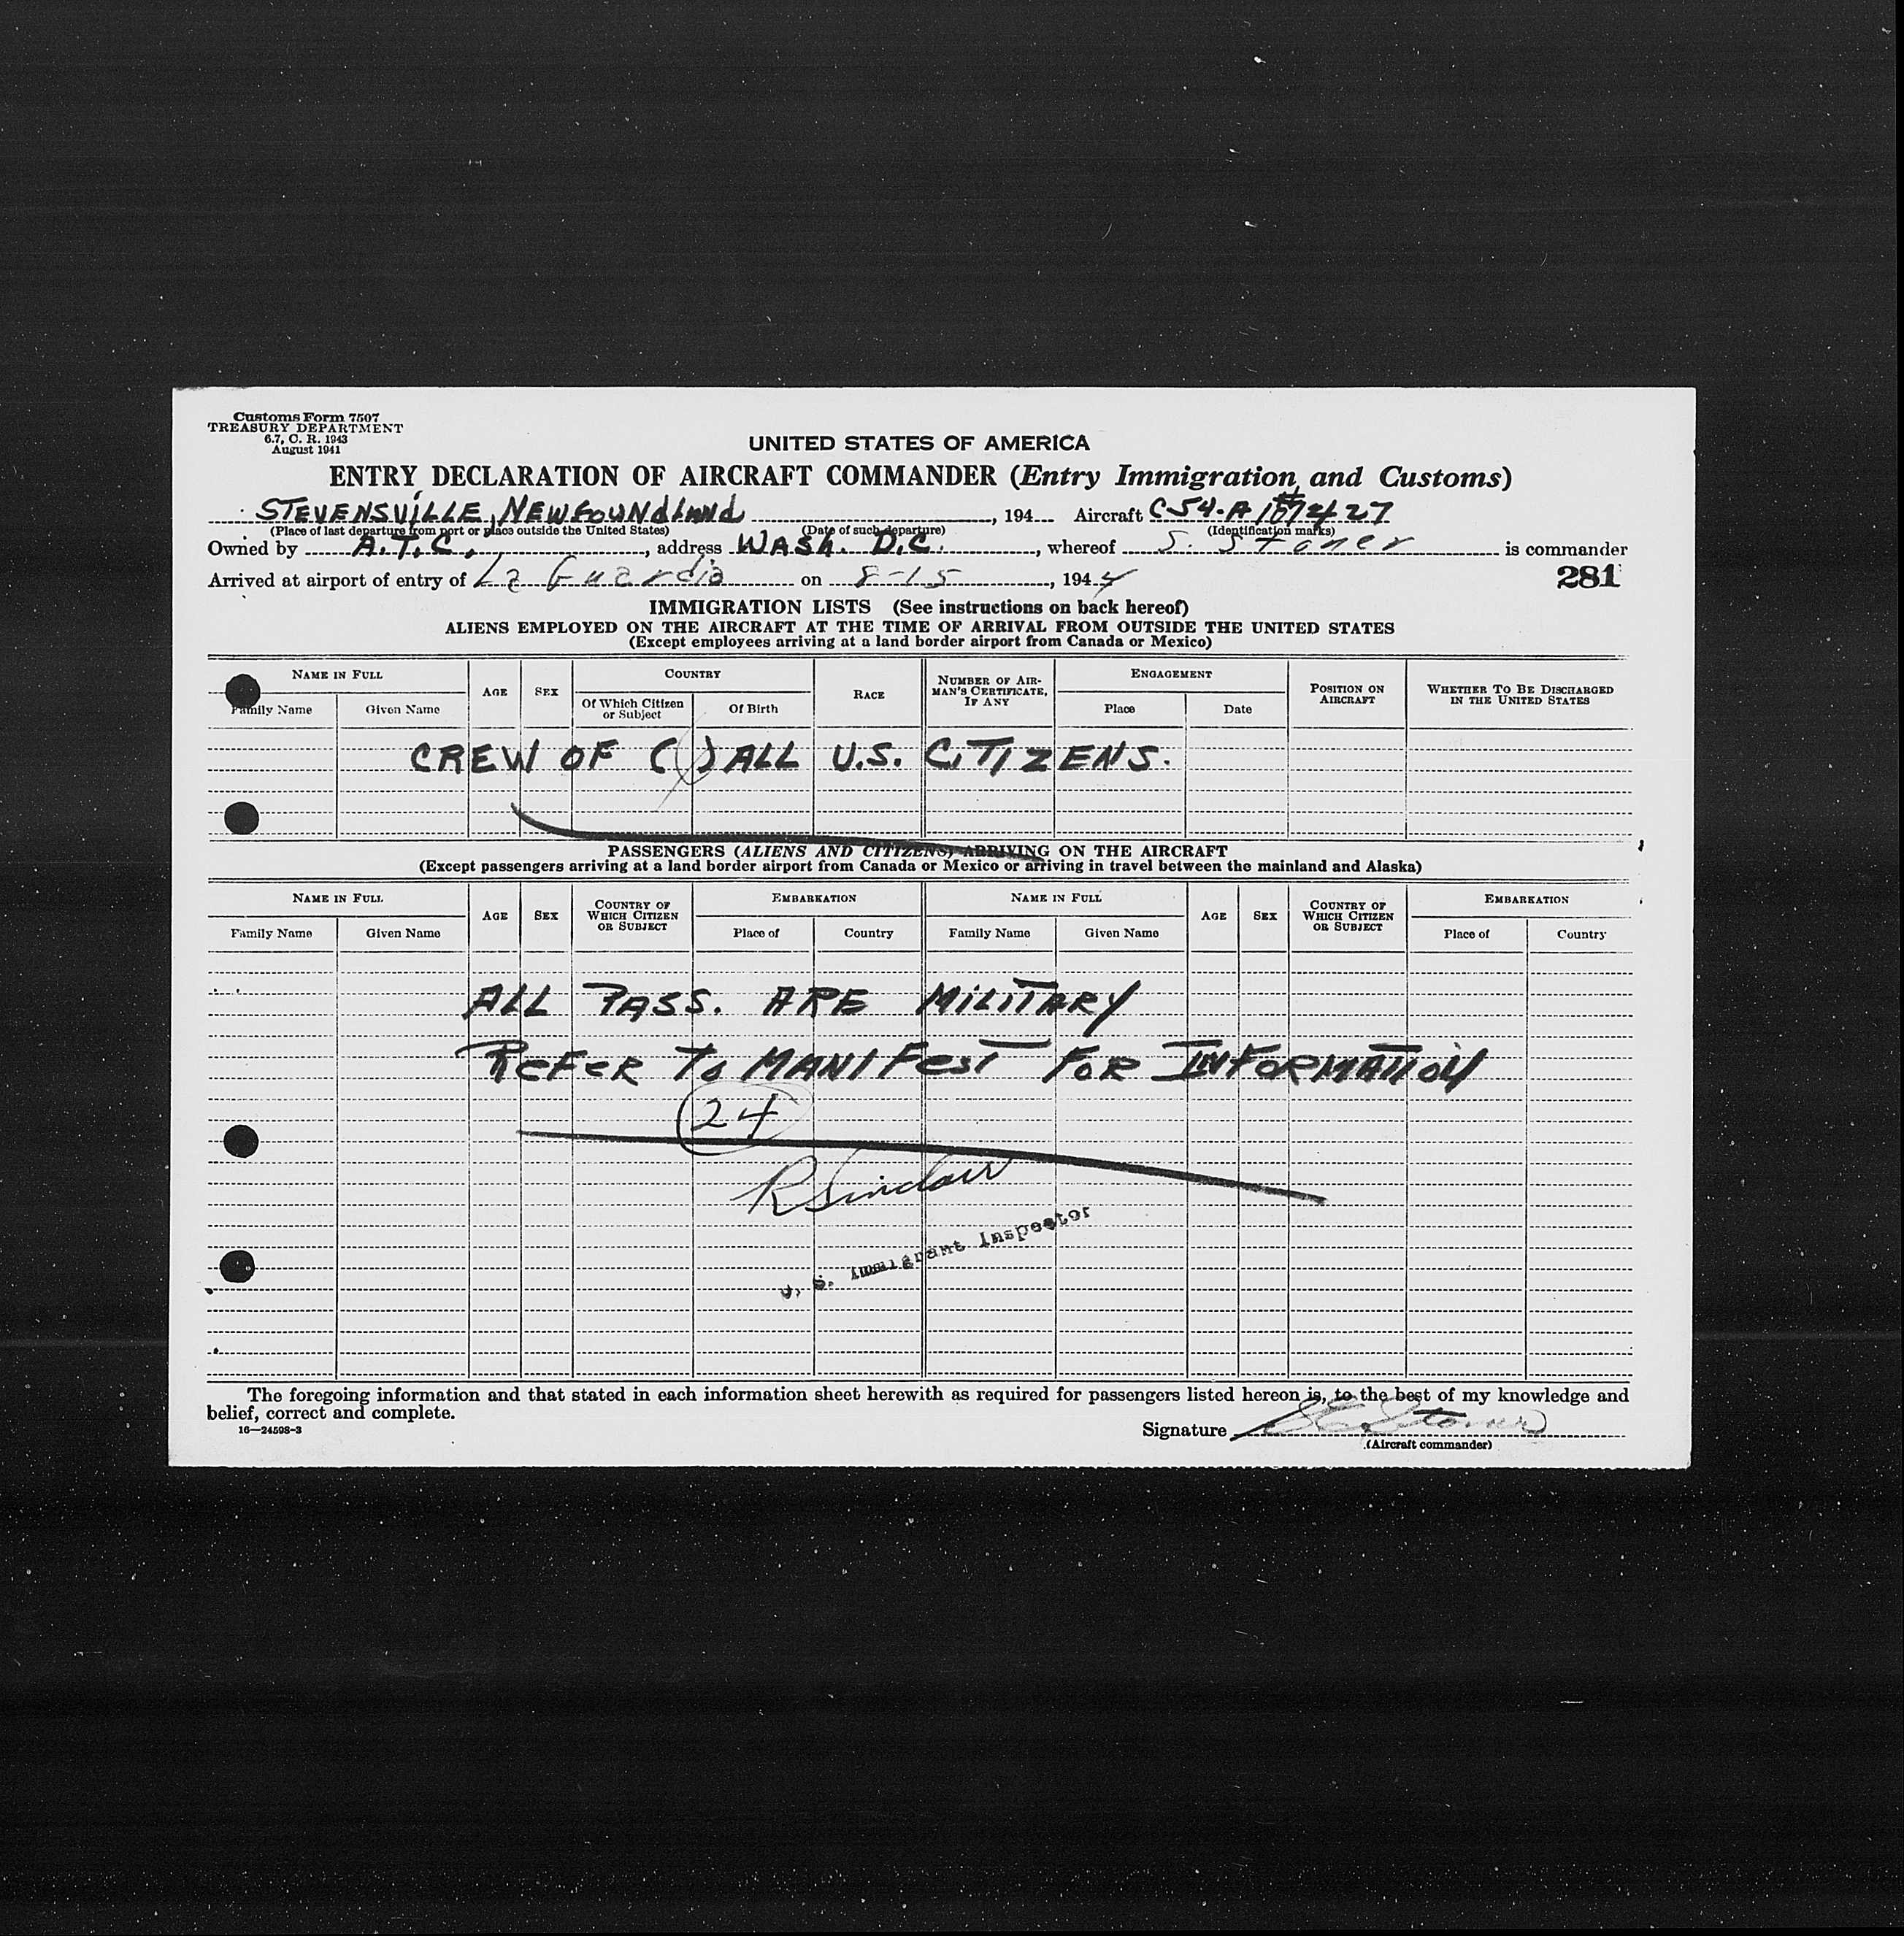 Customs Form 7507
TREASURY DEPARTMENT
6.7, C. R. 1943
August 1941
UNITED STATES OF AMERICA
ENTRY DECLARATION OF AIRCRAFT COMMANDER (Entry Immigration and Customs)
STEVENSVILLE, NEWFOUNDLAND , 194 Aircraft C54-A
(Place of last departure from port or place outside the United States) (Date of such departure) (Identification marks)
Owned by A.T.C. , address WASH. D.C. , whereof S. Stoner is commander
Arrived at airport of entry of La Guardia on 8-15 , 1944 281
IMMIGRATION LISTS (See instructions on back hereof)
ALIENS EMPLOYED ON THE AIRCRAFT AT THE TIME OF ARRIVAL FROM OUTSIDE THE UNITED STATES
(Except employees arriving at a land border airport from Canada or Mexico)
NAME IN FULL AGE SEX COUNTRY RACE NUMBER OF AIR-MAN'S CERTIFICATE, IF ANY ENGAGEMENT POSITION ON AIRCRAFT WHETHER TO BE DISCHARGED IN THE UNITED STATES
Family Name Given Name Of Which Citizen or Subject Of Birth Place Date
CREW OF ( ) ALL U.S. CITIZENS.
PASSENGERS (ALIENS AND CITIZENS) ARRIVING ON THE AIRCRAFT
(Except passengers arriving at a land border airport from Canada or Mexico or arriving in travel between the mainland and Alaska)
NAME IN FULL AGE SEX COUNTRY OF WHICH CITIZEN OR SUBJECT EMBARKATION NAME IN FULL AGE SEX COUNTRY OF WHICH CITIZEN OR SUBJECT EMBARKATION
Family Name Given Name Place of Country Family Name Given Name Place of Country
ALL PASS. ARE MILITARY
REFER TO MANIFEST FOR INFORMATION
24
R Sinclair
U. S. Immigrant Inspector
The foregoing information and that stated in each information sheet herewith as required for passengers listed hereon is, to the best of my knowledge and
belief, correct and complete.
16—24598-3
Signature S Stoner
(Aircraft commander)